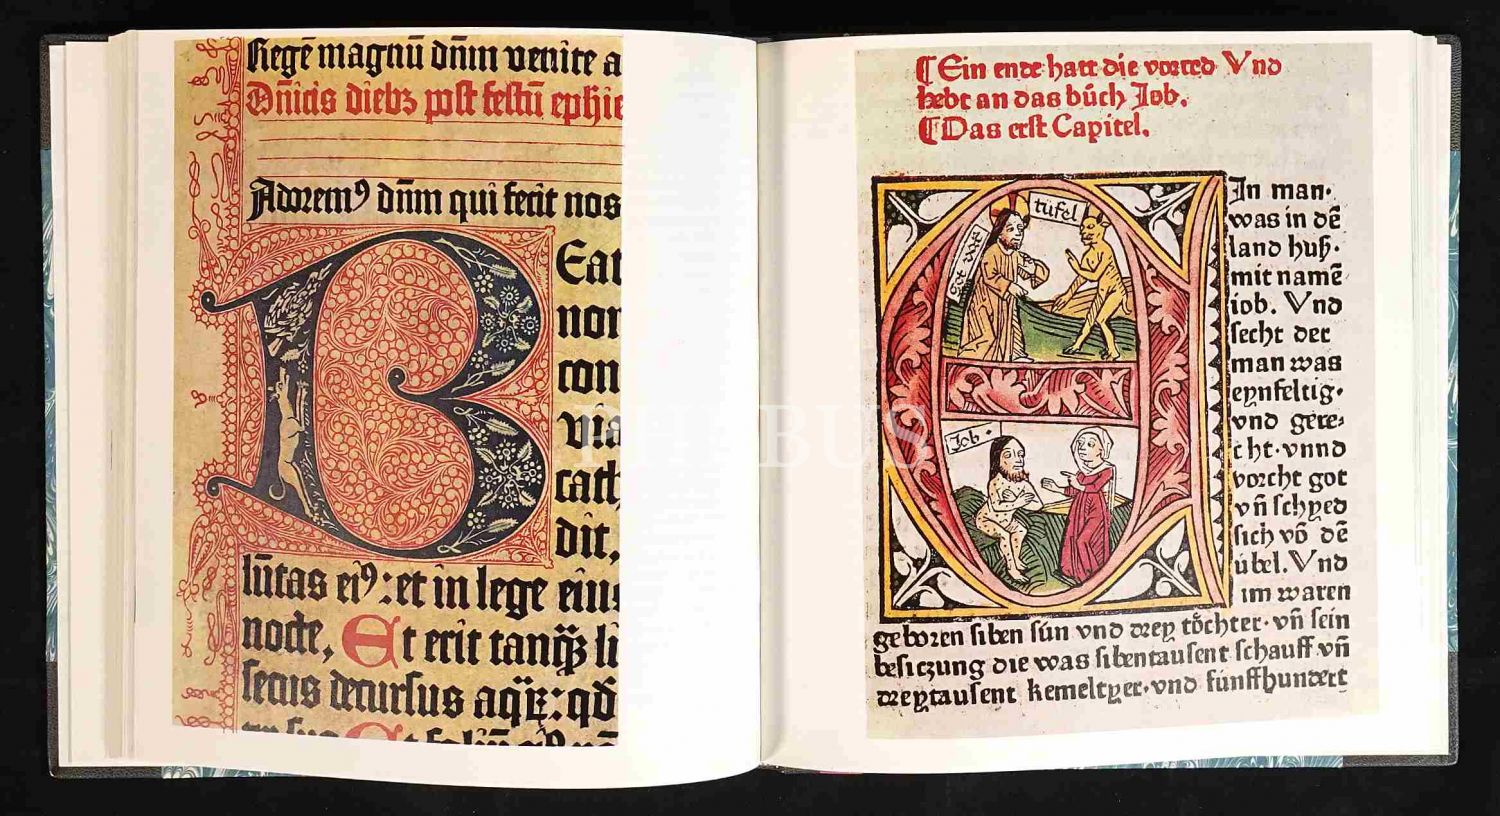 Regē magnū dñm venite a
Dñicis diebꝫ post festū ephie
Adorem⁹ dñm qui fecit nos
Beat
non
con
via
cath
dit,
lūtas ei⁹: et in lege eius
nocte, Et erit tanqꝫ li
secus decursus aqꝝ: qd̄
¶ Ein ende hatt die vorred Vnd
hebt an das bůch Job.
¶ Das erst Capitel.
tüfel
Got
Job
EIn man·
was in dē
land huß·
mit namē
iob. Vnd
secht der
man was
eynfeltig·
vnd gere⸗
cht·vnnd
vorcht got
vñ schyed
sich vō dē
übel. Vnd
im waren
geboren siben sün vnd drey töchter·vñ sein
besiczung die was sibentausent schauff vñ
dreytausent kemeltyer·vnd funffhundert
PHEBUS